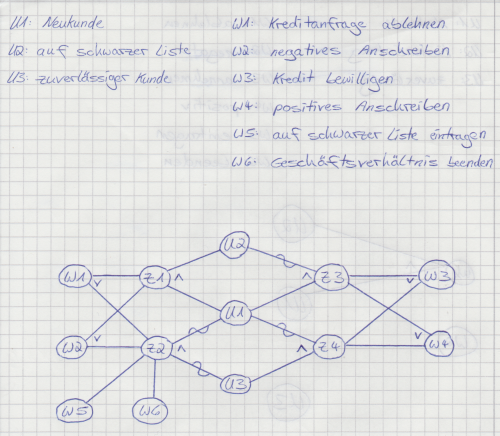 U1: Neukunde
U2: auf schwarzer Liste
U3: zuverlässiger Kunde
W1: Kreditanfrage ablehnen
W2: negatives Anschreiben
W3: Kredit bewilligen
W4: positives Anschreiben
W5: auf schwarzer Liste eintragen
W6: Geschäftsverhältnis beenden
U2
W1 v Z1 ^ ^ Z3 v W3
U1
W2 v Z2 ^ ^ Z4 v W4
U3
W5 W6